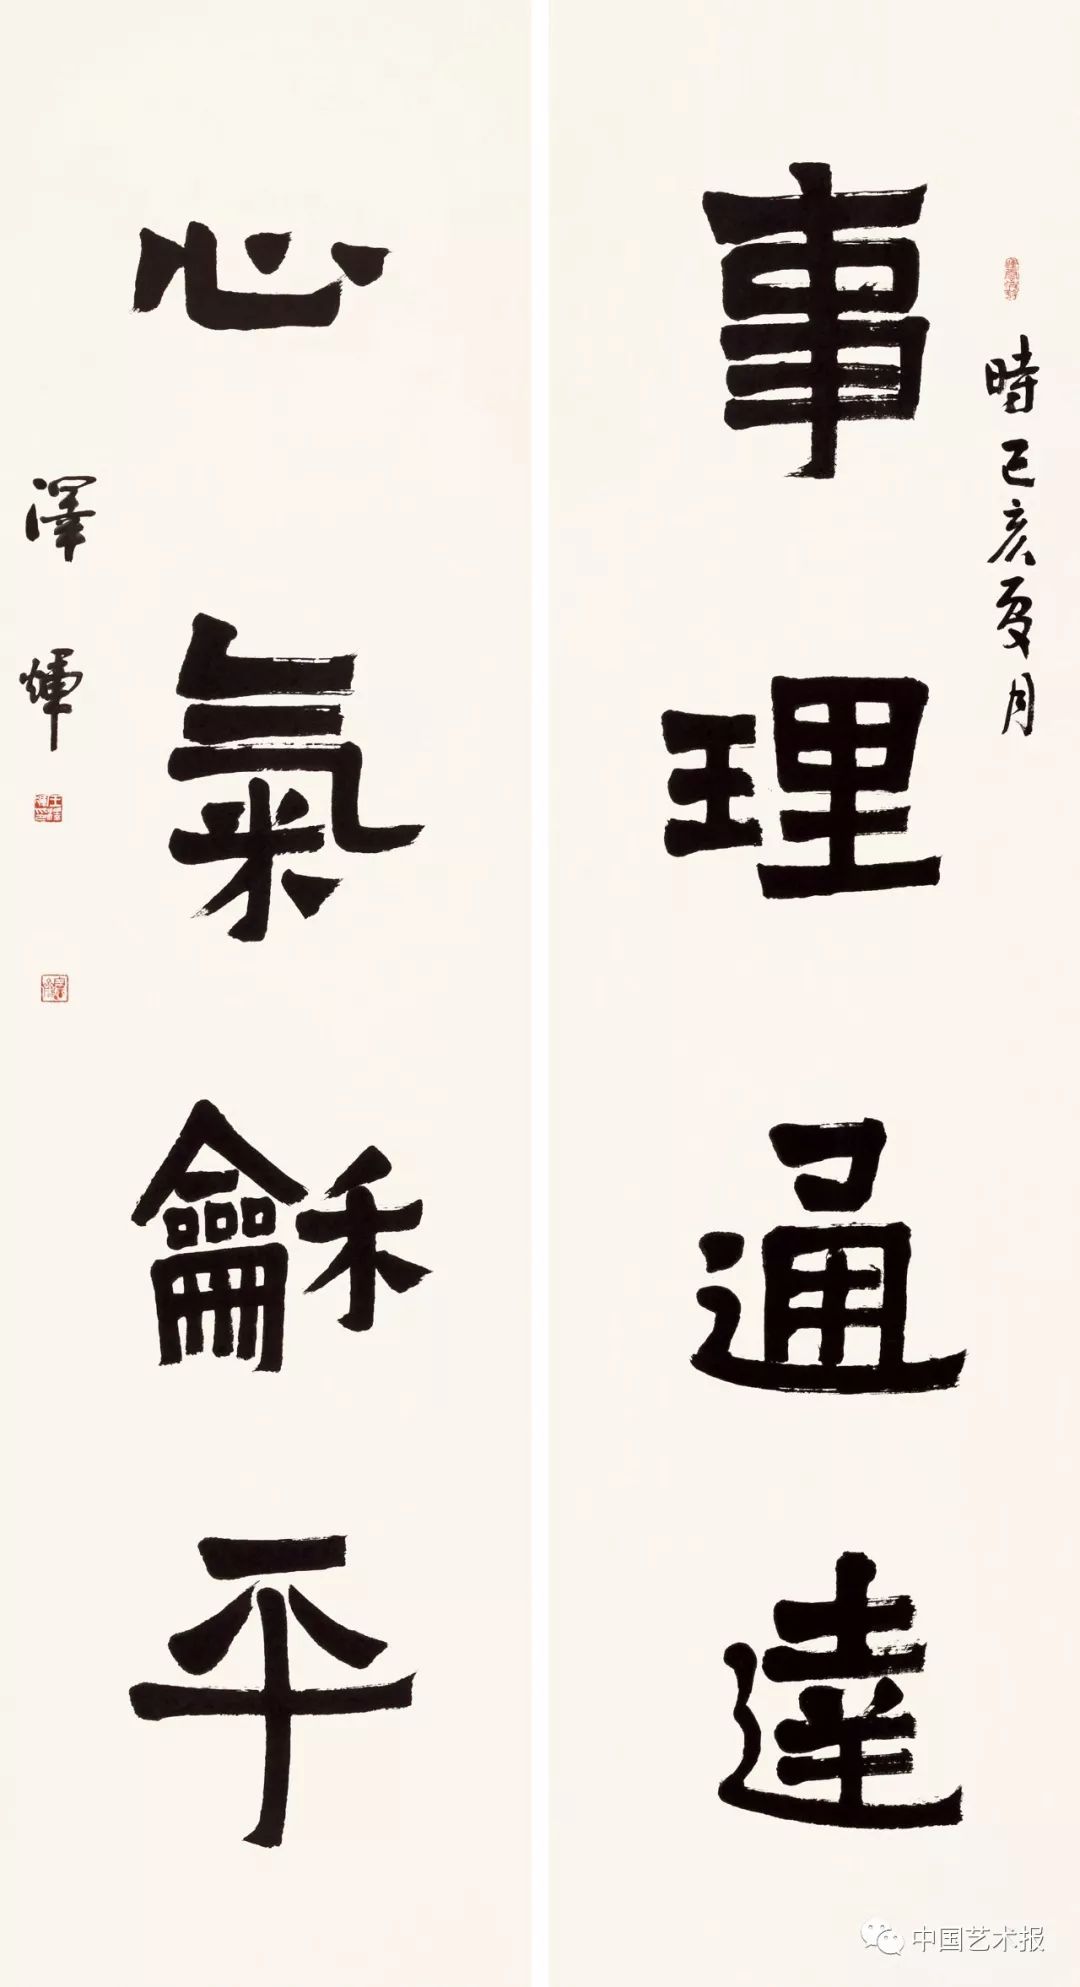 時己亥夏月
事理通達
心氣龢平
澤煇
中国艺术报